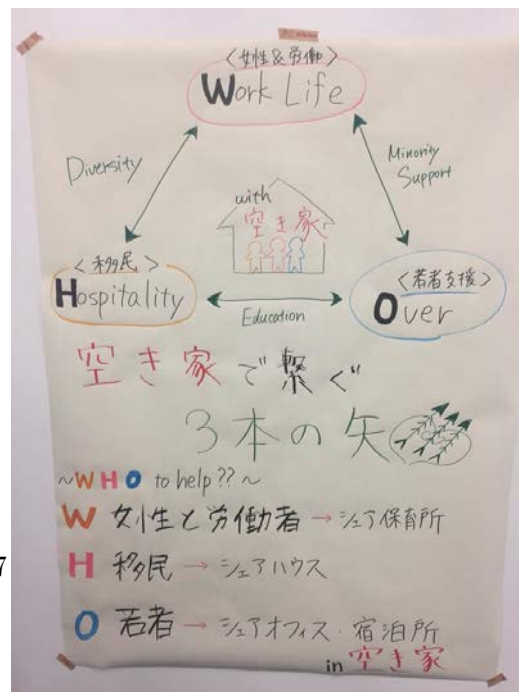 <女性&労働>
Work Life
Diversity
Minority
Support
with
空き家
<移民>
Hospitality
Education
<若者支援>
Over
空き家で繋ぐ
3本の矢
~WHO to help??~
W 女性と労働者→シェア保育所
H 移民→シェアハウス
O 若者→シェアオフィス・宿泊所
in 空き家
7